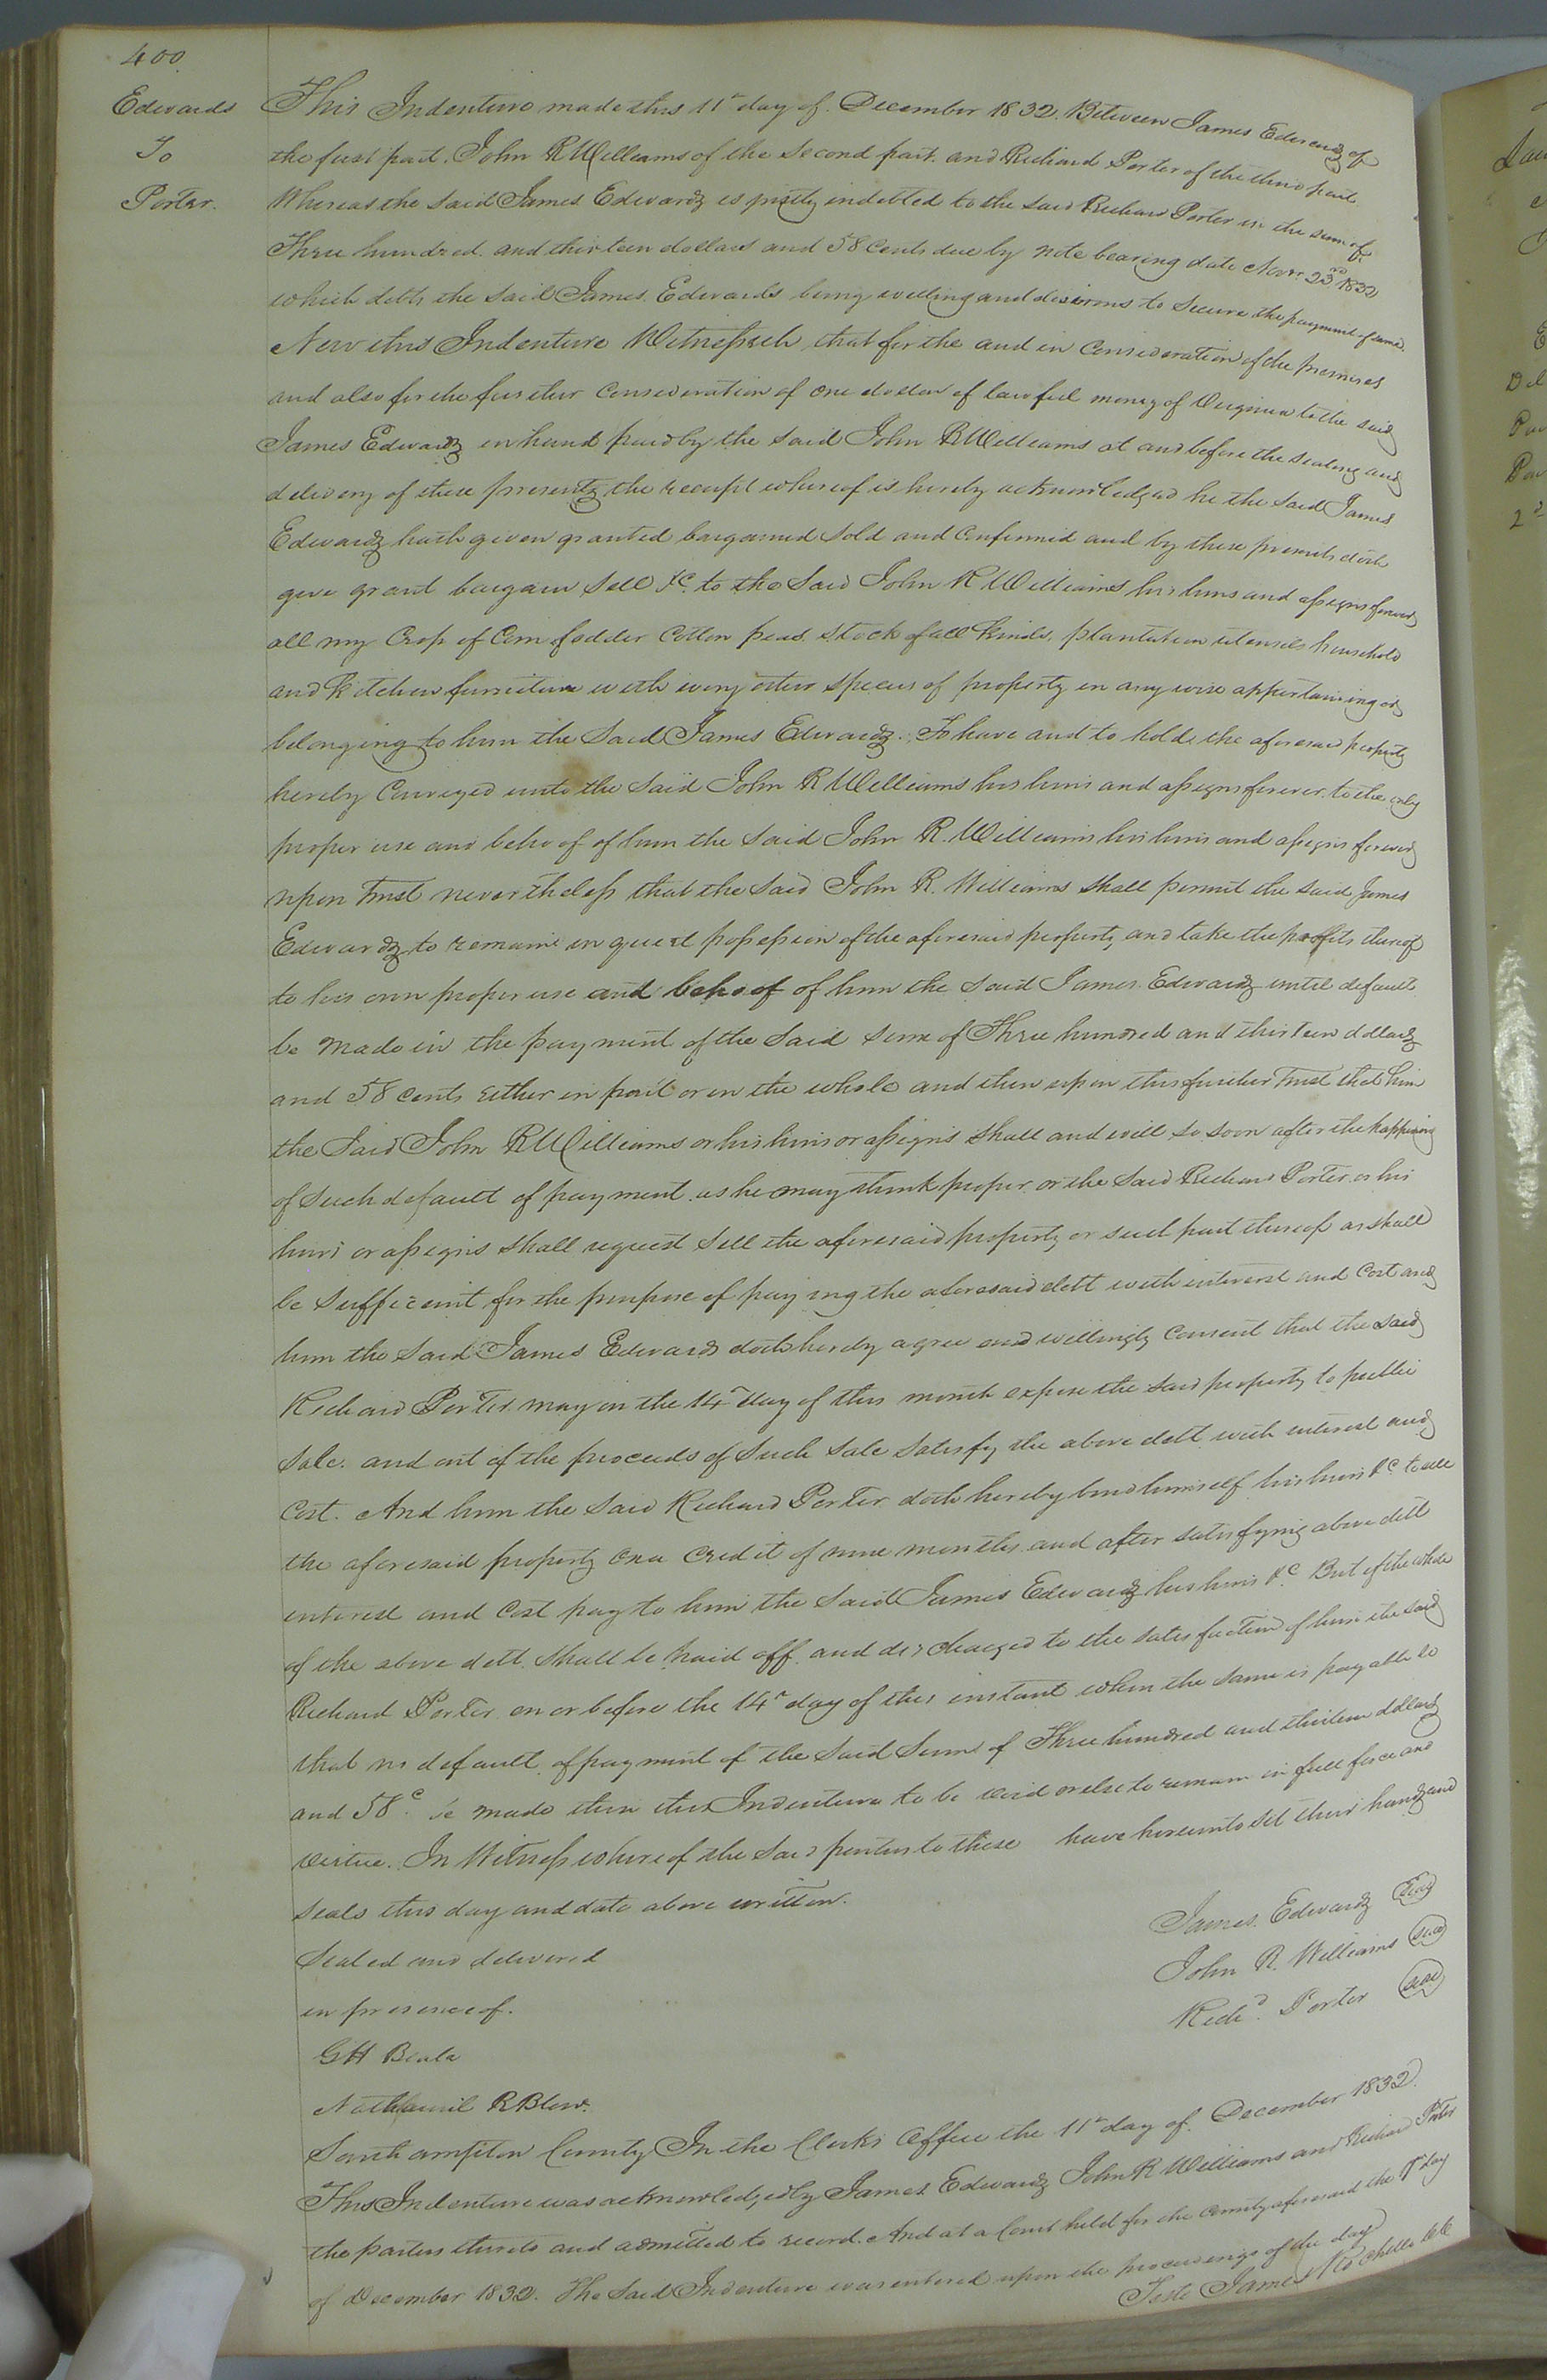 400
Edwards
To
Porter.
This Indenture made this 11th day of December 1832. Between James Edwards of
the first part. John R Williams of the Second part. and Richard Porter of the third part.
Whereas the said James Edwards is justly indebted to the said Richard Porter in the sum of
Three hundred. and thirteen dollars and 58 cents due by note bearing date Novr. 23rd 1832
which debt, the said James Edwards being willing and desirous to Secure the payment of same.
Now this Indenture Witnesseth that for the and in Consideration of the premises
and also for the further Consideration of one dollar of lawful money of Virginia to the said
James Edwards in hand paid by the said John R Williams at and before the sealing and
delivery of these presents the receipt whereof is hereby acknowledged he the said James
Edwards hath given granted bargained sold and confirmed and by these presents doth
give grant bargain sell &c. to the said John R Williams his heirs and assigns forever
all my Crop of Corn fodder Cotton peas. Stock of all kinds, plantation utensils household
and kitchen furniture with every other species of property in any wise appertaining or
belonging to him the said James Edwards. To have and to hold the aforesaid property
hereby Conveyed unto the said John R Williams his heirs and assigns forever. to the only
proper use and behoof of him the said John R. Williams his heirs and assigns forever
upon Trust nevertheless that the said John R. Williams shall permit the said James
Edwards to remain in quiet possession of the aforesaid property and take the profits thereof
to his own proper use and behoof of him the said James Edwards until default
be made in the payment of the said sum of Three hundred and thirteen dollars
and 58 cents either in part or in the whole and then upon this further Trust that him
the said John R Williams or his heirs or assigns shall and will so soon after the happening
of such default of payment as he may think proper or the said Richard Porter or his
heirs or assigns shall request sell the aforesaid property or such part thereof as shall
be sufficient for the purpose of paying the aforesaid debt with interest and Cost and
him the said James Edwards doth hereby agree and willingly Consent that the said
Richard Porter may on the 14th day of this month expose the said property to public
sale. and out of the proceeds of such sale satisfy the above debt with interest and
Cost. And him the said Richard Porter doth hereby bind himself his heirs &c. to sell
the aforesaid property on a credit of nine months and after satisfying above debt
interest and Cost pay to him the said James Edwards his heirs &c. But if the whole
of the above debt shall be paid off and discharged to the satisfaction of him the said
Richard Porter on or before the 14th day of this instant when the same is payable so
that no default of payment of the said Sum of Three hundred and thirteen dollars
and 58 c. be made then this Indenture to be void or else to remain in full force and
virtue. In Witness whereof the said parties to these have hereunto set their hands and
seals this day and date above written.
Sealed and delivered
in presence of.
G H Beale
Nathaniel R Blow.
James Edwards seal
John R. Williams seal
Richd. Porter seal
Southampton County In the Clerks Office the 11th day of December 1832.
This Indenture was acknowledged by James Edwards John R Williams and Richard Porter
the parties thereto and admitted to record. And at a Court held for the County aforesaid the day
of December 1832. The said Indenture was entered upon the proceedings of the day
Teste James Rochelle